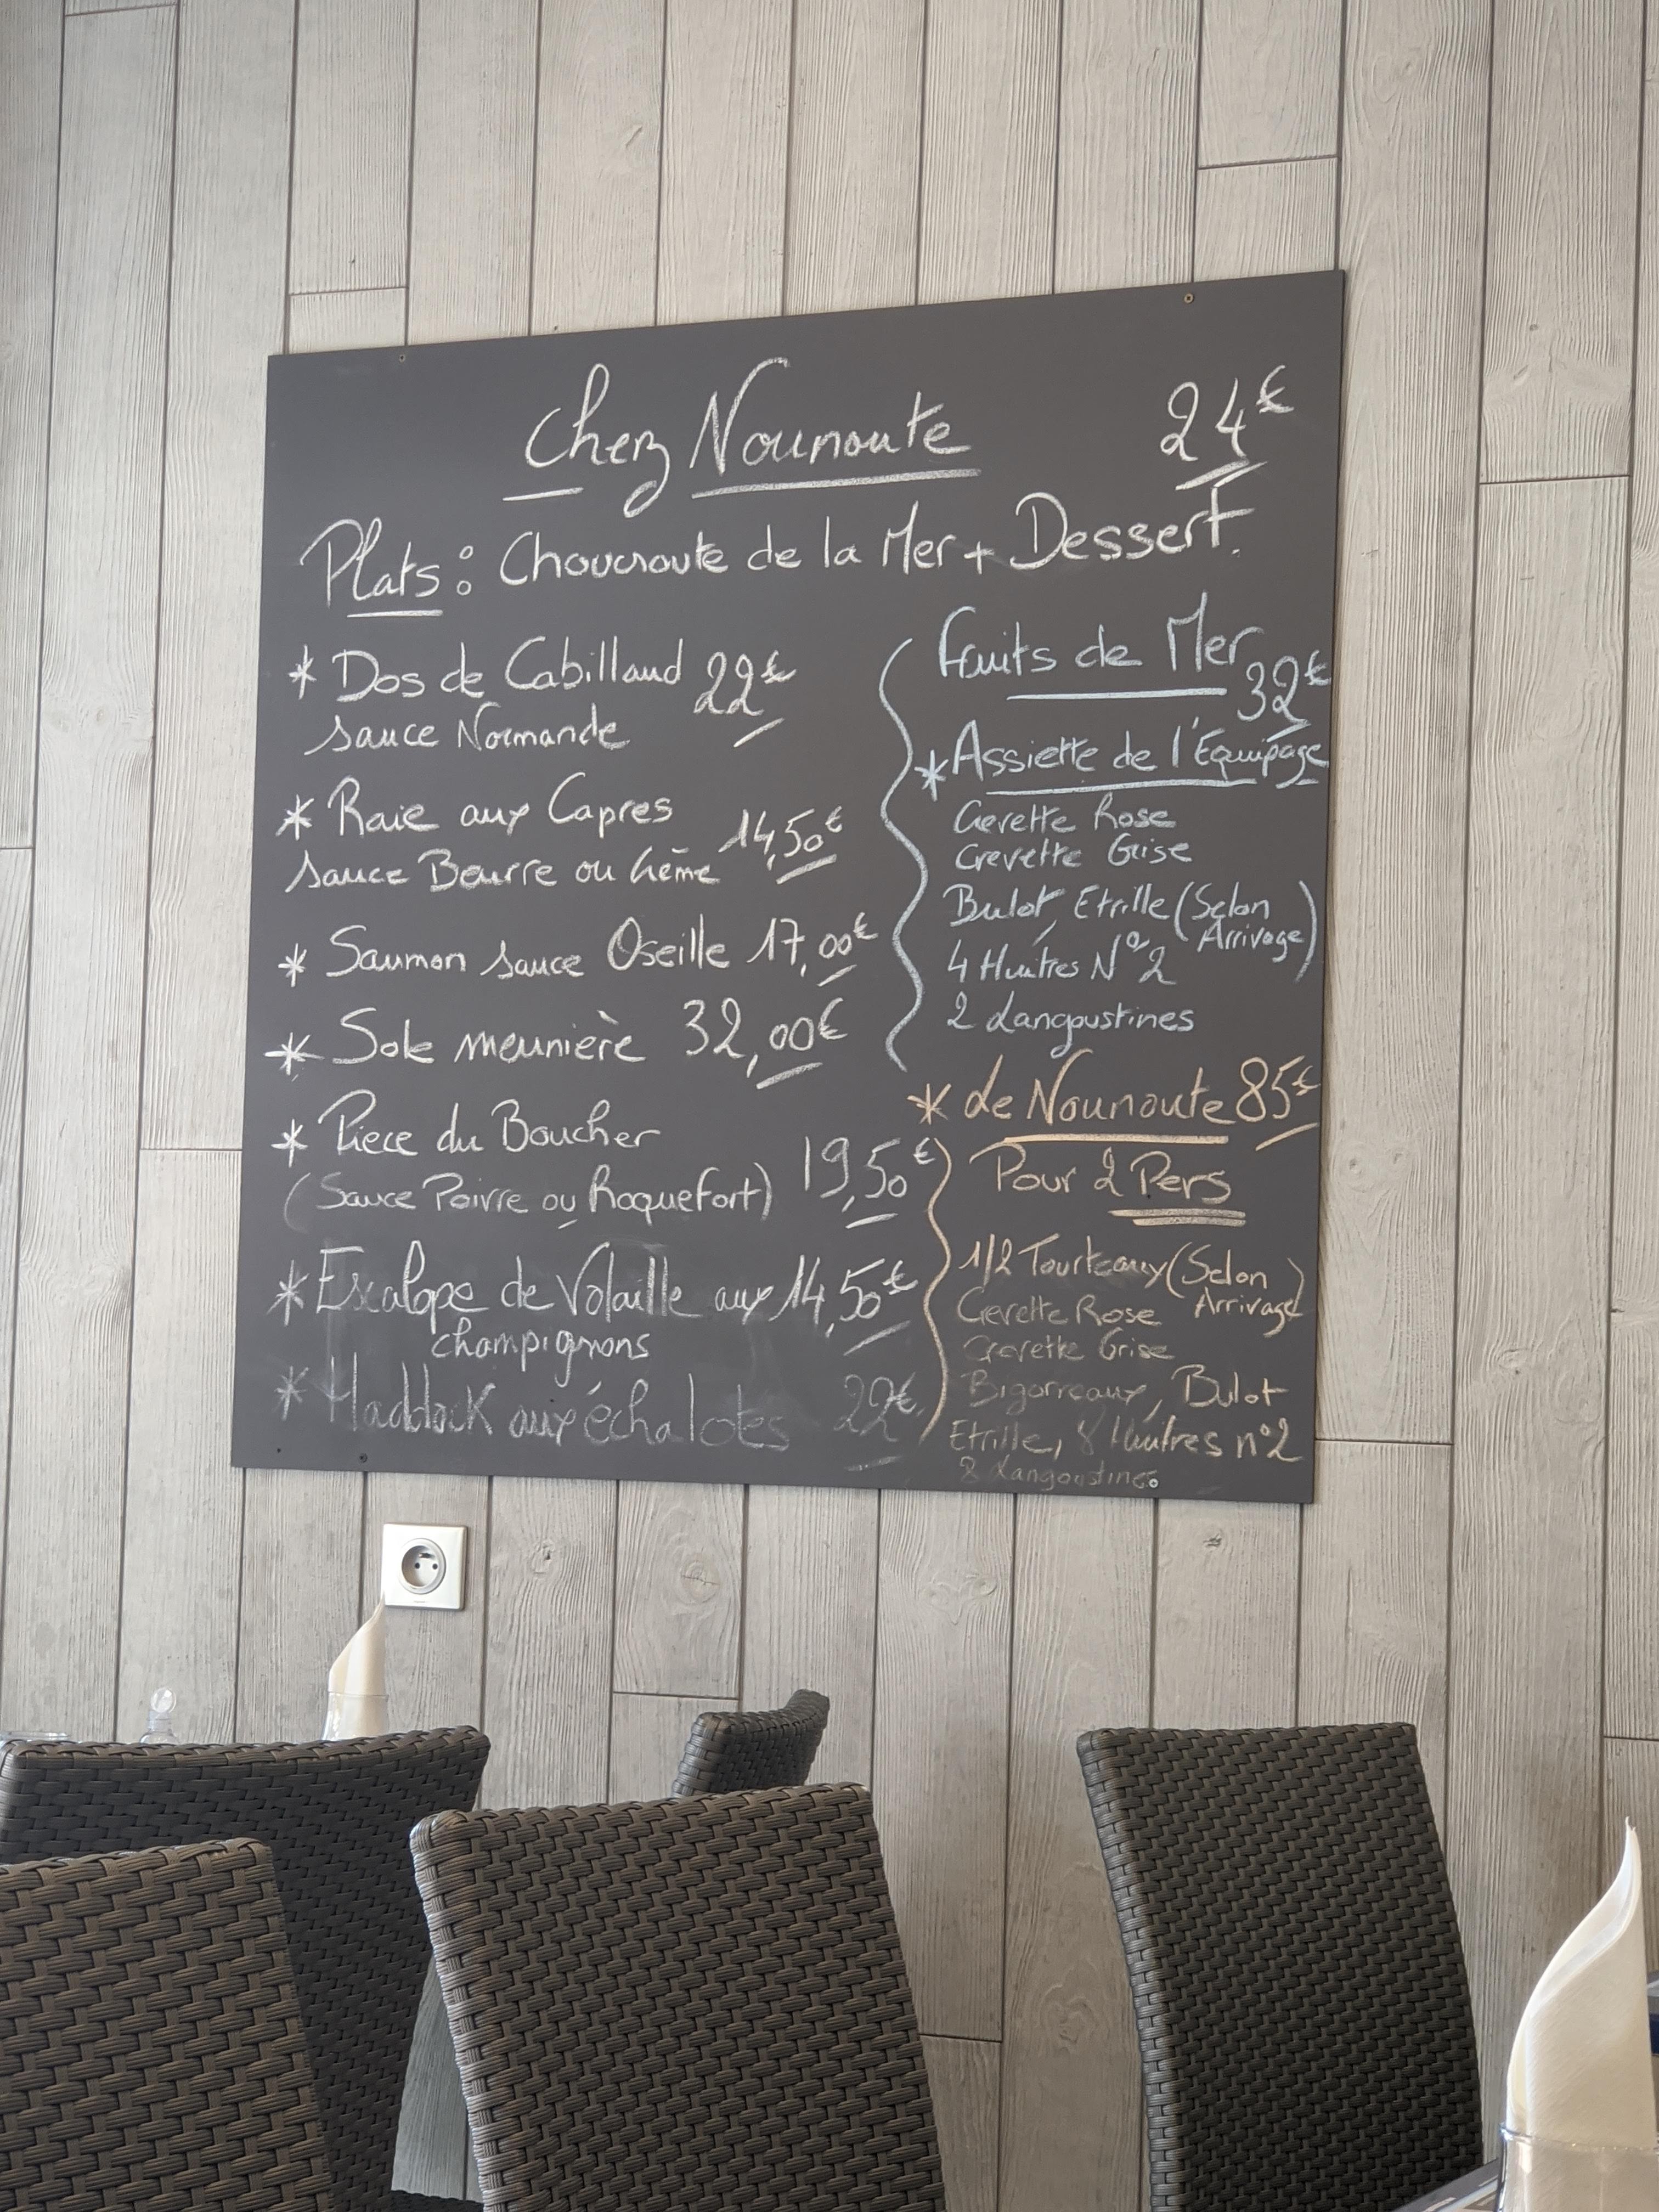 Chez Nounoute 24€
Plats : Choucroute de la Mer + Dessert.
* Dos de Cabillaud 22€
sauce Normande
* Raie aux Capres
sauce Beurre ou Crème 14,50€
* Saumon sauce Oseille 17,00€
* Sole meunière 32,00€
* Piece du Boucher
(Sauce Poivre ou Roquefort) 19,50€
* Escalope de Volaille aux 14,50€
champignons
* Haddock aux échalotes 22€
Fruits de Mer
32€
* Assiette de l'Equipage
Crevette Rose
Crevette Grise
Bulot, Etrille (Selon
Arrivage)
4 Huitres N°2
2 Langoustines
* Le Nounoute 85€
Pour 2 Pers
1/2 Tourteaux (Selon
Arrivage)
Crevette Rose
Crevette Grise
Bigorreaux, Bulot
Etrille, 8 Huitres n°2
8 Langoustines